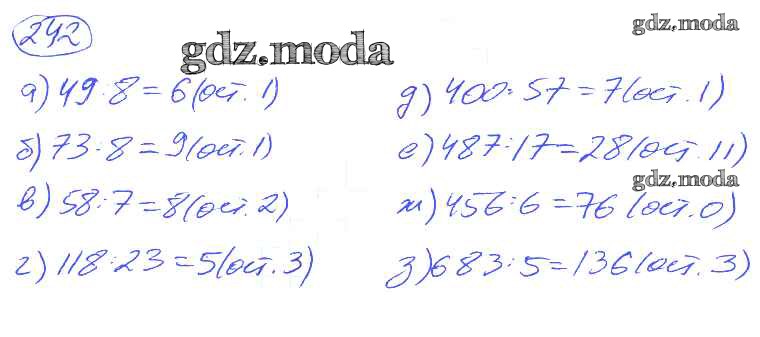 242
gdz.moda
gdz.moda
а) 49:8=6(ост. 1)
б) 73:8=9(ост.1)
в) 58:7=8(ост. 2)
г) 118:23=5(ост. 3)
д) 400:57=7(ост. 1)
е) 487:17=28(ост. 11)
gdz.moda
ж) 456:6=76 (ост. 0)
з) 683:5=136(ост. 3)